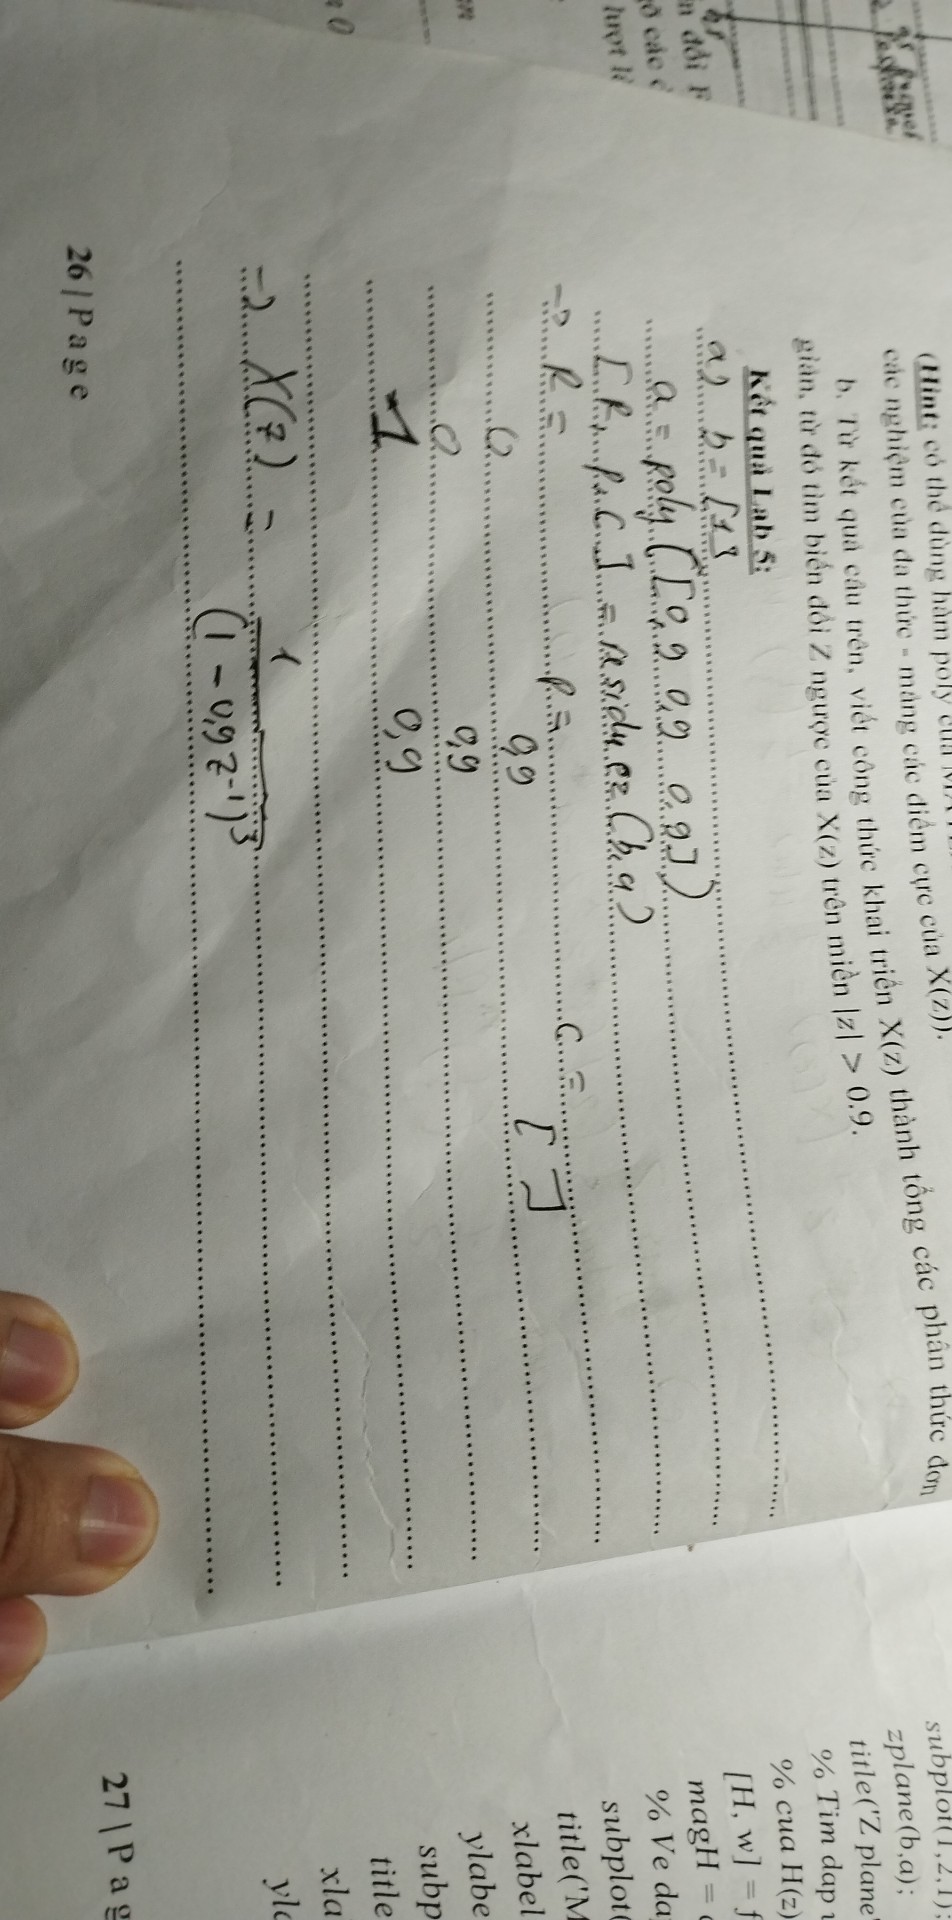 (Hint: có thể dùng hàm poly của
các nghiệm của đa thức - mảng các điểm cực của X(z)).
b. Từ kết quả câu trên, viết công thức khai triển X(z) thành tổng các phân thức đơn
giản, từ đó tìm biến đổi Z ngược của X(z) trên miền |z| > 0.9.
Kết quả Lab 5:
a) b = [1]
a = poly ([0,9 0,9 0,9])
[R, p, C] = residuez (b,a)
-> R = p = C =
0 0,9 [ ]
0 0,9
1 0,9
-> X(z) = 1
(1 - 0,9 z⁻¹)³
26 | Page
đổi F
các
lượt
0
subplot(1,2,1);
zplane(b,a);
title('Z plane'
% Tim dap
% cua H(z)
[H, w] = f
magH =
% Ve da
subplot(
title('M
xlabel
ylabe
subp
title
xla
yla
27 | Pag